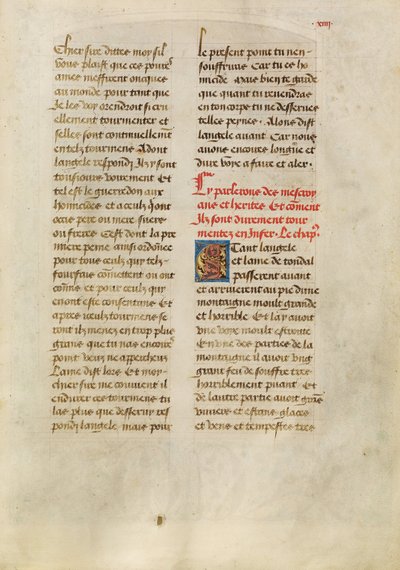 xiiii
Chier sire dittes moy sil
vous plaist que ces poures
ames meffirent oncques
au monde pour tant que
Je les voy orendroit si cru
ellement tourmenter et
selles sont continuellement
en telz tourmens Adont
langele respondi Ilz y sont
tousiours voirement Et
tel est le guerredon aux
homicides et a ceulz quont
occis pere ou mere suers
ou freres Cest dont la pre
miere peine ainsi ordonnee
pour tous ceulz qui telz
fourfais commettent ou ont
commis et pour ceulz qui
en ont este consentans Et
apres ceulz tourmens se
ront ilz menez en trop plus
grans que tu nas encores
point veuz ne apperceuz
Lame dist lors Et moy
chier sire me convient il
endurer ces tourmens tu
las plus que desseruy res
pondi langele mais pour
le present point tu nen
souffriras Car tu es ho
micide Mais bien te garde
que quant tu reuendras
en ton corpe tu ne desserues
telles peynes Alons dist
langele auant Car nous
auons encores longue et
dure voye a faire et aler
Cy parlerons des mescroy
ans et herites Et coment
Ilz sont durement tour
mentez en Infer Le chapitre
Etant langele
et lame de tondal
passerent auant
et arriuerent au pie dune
montaigne moult grande
et horrible Et la y auoit
une voye moult estroite
En une des parties de la
montaigne il auoit ung
grant feu de souffre tres
horriblement puant Et
de lautre partie auoit grant
riuiere et estans glaces
et vens et tempestes tres